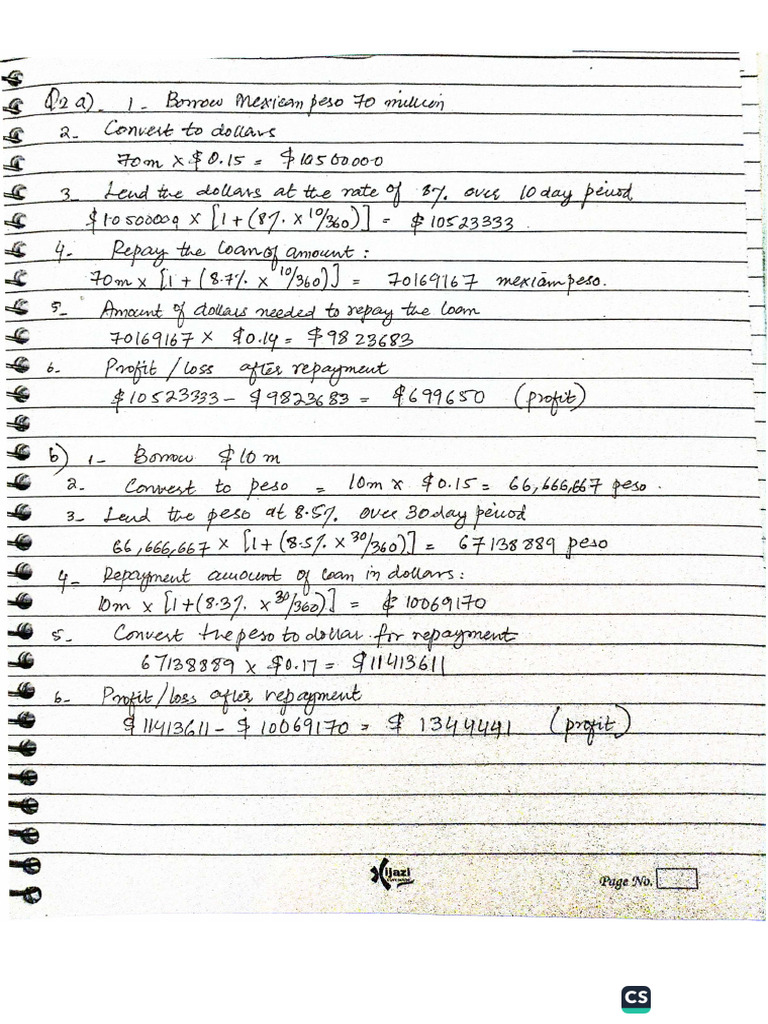 Q2 a) 1- Borrow Mexican peso 70 million
2- Convert to dollars
70m x $ 0.15 = $ 10500000
3- Lend the dollars at the rate of 8% over 10 day period
$ 10500000 x [1 + (8% x 10/360)] = $ 10523333.
4- Repay the loan of amount :
70m x [1 + (8.7% x 10/360)] = 70169167 mexican peso.
5- Amount of dollars needed to repay the loan
70169167 x $0.14 = $ 9823683
6- Profit / loss after repayment
$ 10523333 - $ 9823683 = $ 699650 (profit)
b) 1- Borrow $ 10 m
2- Convert to peso = 10m x $ 0.15 = 66,666,667 peso.
3- Lend the peso at 8.5% over 30 day period
66,666,667 x [1+(8.5% x 30/360)] = 67138889 peso
4- Repayment amount of loan in dollars :
10m x [1+(8.3% x 30/360)] = $ 10069170
5- Convert the peso to dollar for repayment
67138889 x $0.17 = $11413611
6- Profit/loss after repayment
$ 11413611 - $ 10069170 = $ 1344441 (profit)
ijazi
Page No.
CS